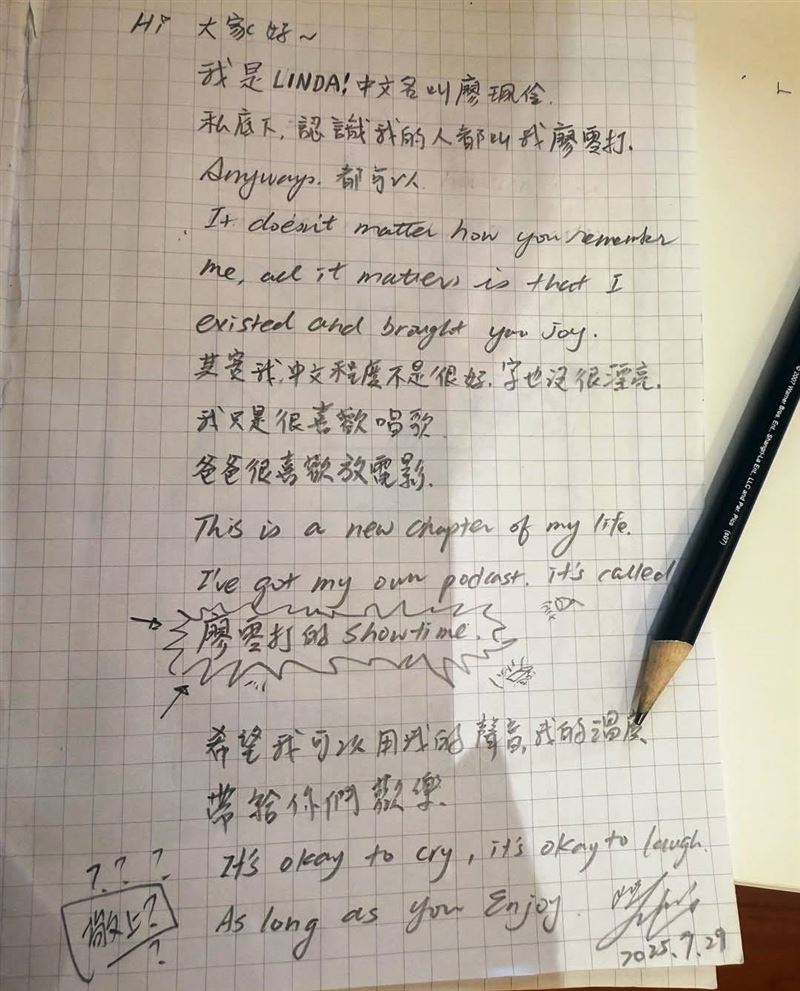 Hi 大家好~
我是LINDA!中文名叫廖珮伶.
私底下,認識我的人都叫我廖零打.
Anyways.都可以
It doesn't matter how you remember
me, all it matters is that I
existed and brought you joy.
其實我,中文程度不是很好.字也沒很漂亮.
我只是很喜歡唱歌
爸爸很喜歡放電影.
This is a new chapter of my life.
I've got my own podcast. it's called
廖零打的 Showtime.
希望我可以用我的聲音,我的溫度
帶給你們歡樂.
It's okay to cry, it's okay to laugh.
As long as you Enjoy.
? ? ?
敬上?
?
2025.9.29
©2007 Warner Bros. Ent. Shangri-La Ent., LLC and Par. Pics (s07)